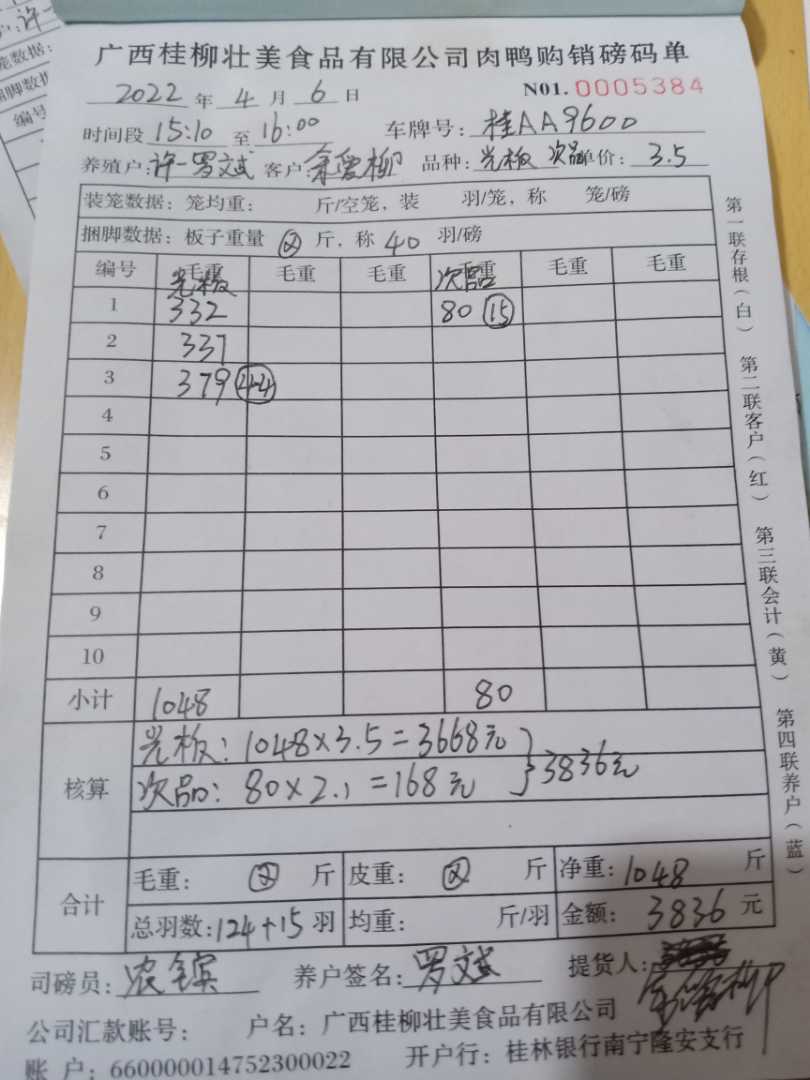 广西桂柳壮美食品有限公司肉鸭购销磅码单
2022 年 4 月 6 日 N01. 0005384
时间段 15:10 至 16:00 车牌号: 桂AA9600
养殖户: 许一罗文斌 客户: 柳 品种: 光板 次品 单价: 3.5
装笼数据: 笼均重: 斤/空笼, 装 羽/笼, 称 笼/磅
捆脚数据: 板子重量 斤, 称 40 羽/磅
编号 毛重 光板 毛重 毛重 毛重 次品 毛重 毛重
1 332 80 15
2 337
3 379 44
4
5
6
7
8
9
10
小计 1048 80
核算 光板: 1048×3.5=3668元 } 3836元
次品: 80×2.1=168元
合计 毛重: 斤 皮重: 斤 净重: 1048 斤
总羽数: 124+15 羽 均重: 斤/羽 金额: 3836 元
司磅员: 农 养户签名: 罗文斌 提货人:
公司汇款账号: 户名: 广西桂柳壮美食品有限公司
账 户: 660000014752300022 开户行: 桂林银行南宁隆安支行
第一联存根(白) 第二联客户(红) 第三联会计(黄) 第四联养户(蓝)